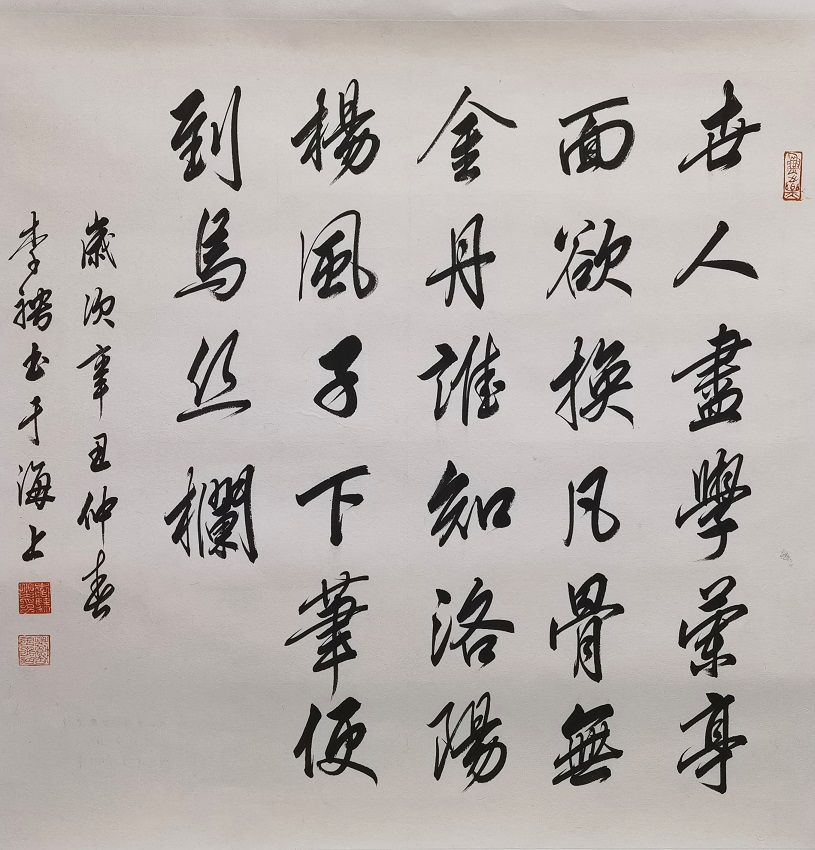 世人盡學蘭亭
面欲換凡骨無
金丹誰知洛陽
楊風子下筆便
到烏丝欄
歲次辛丑仲春
李書于海上